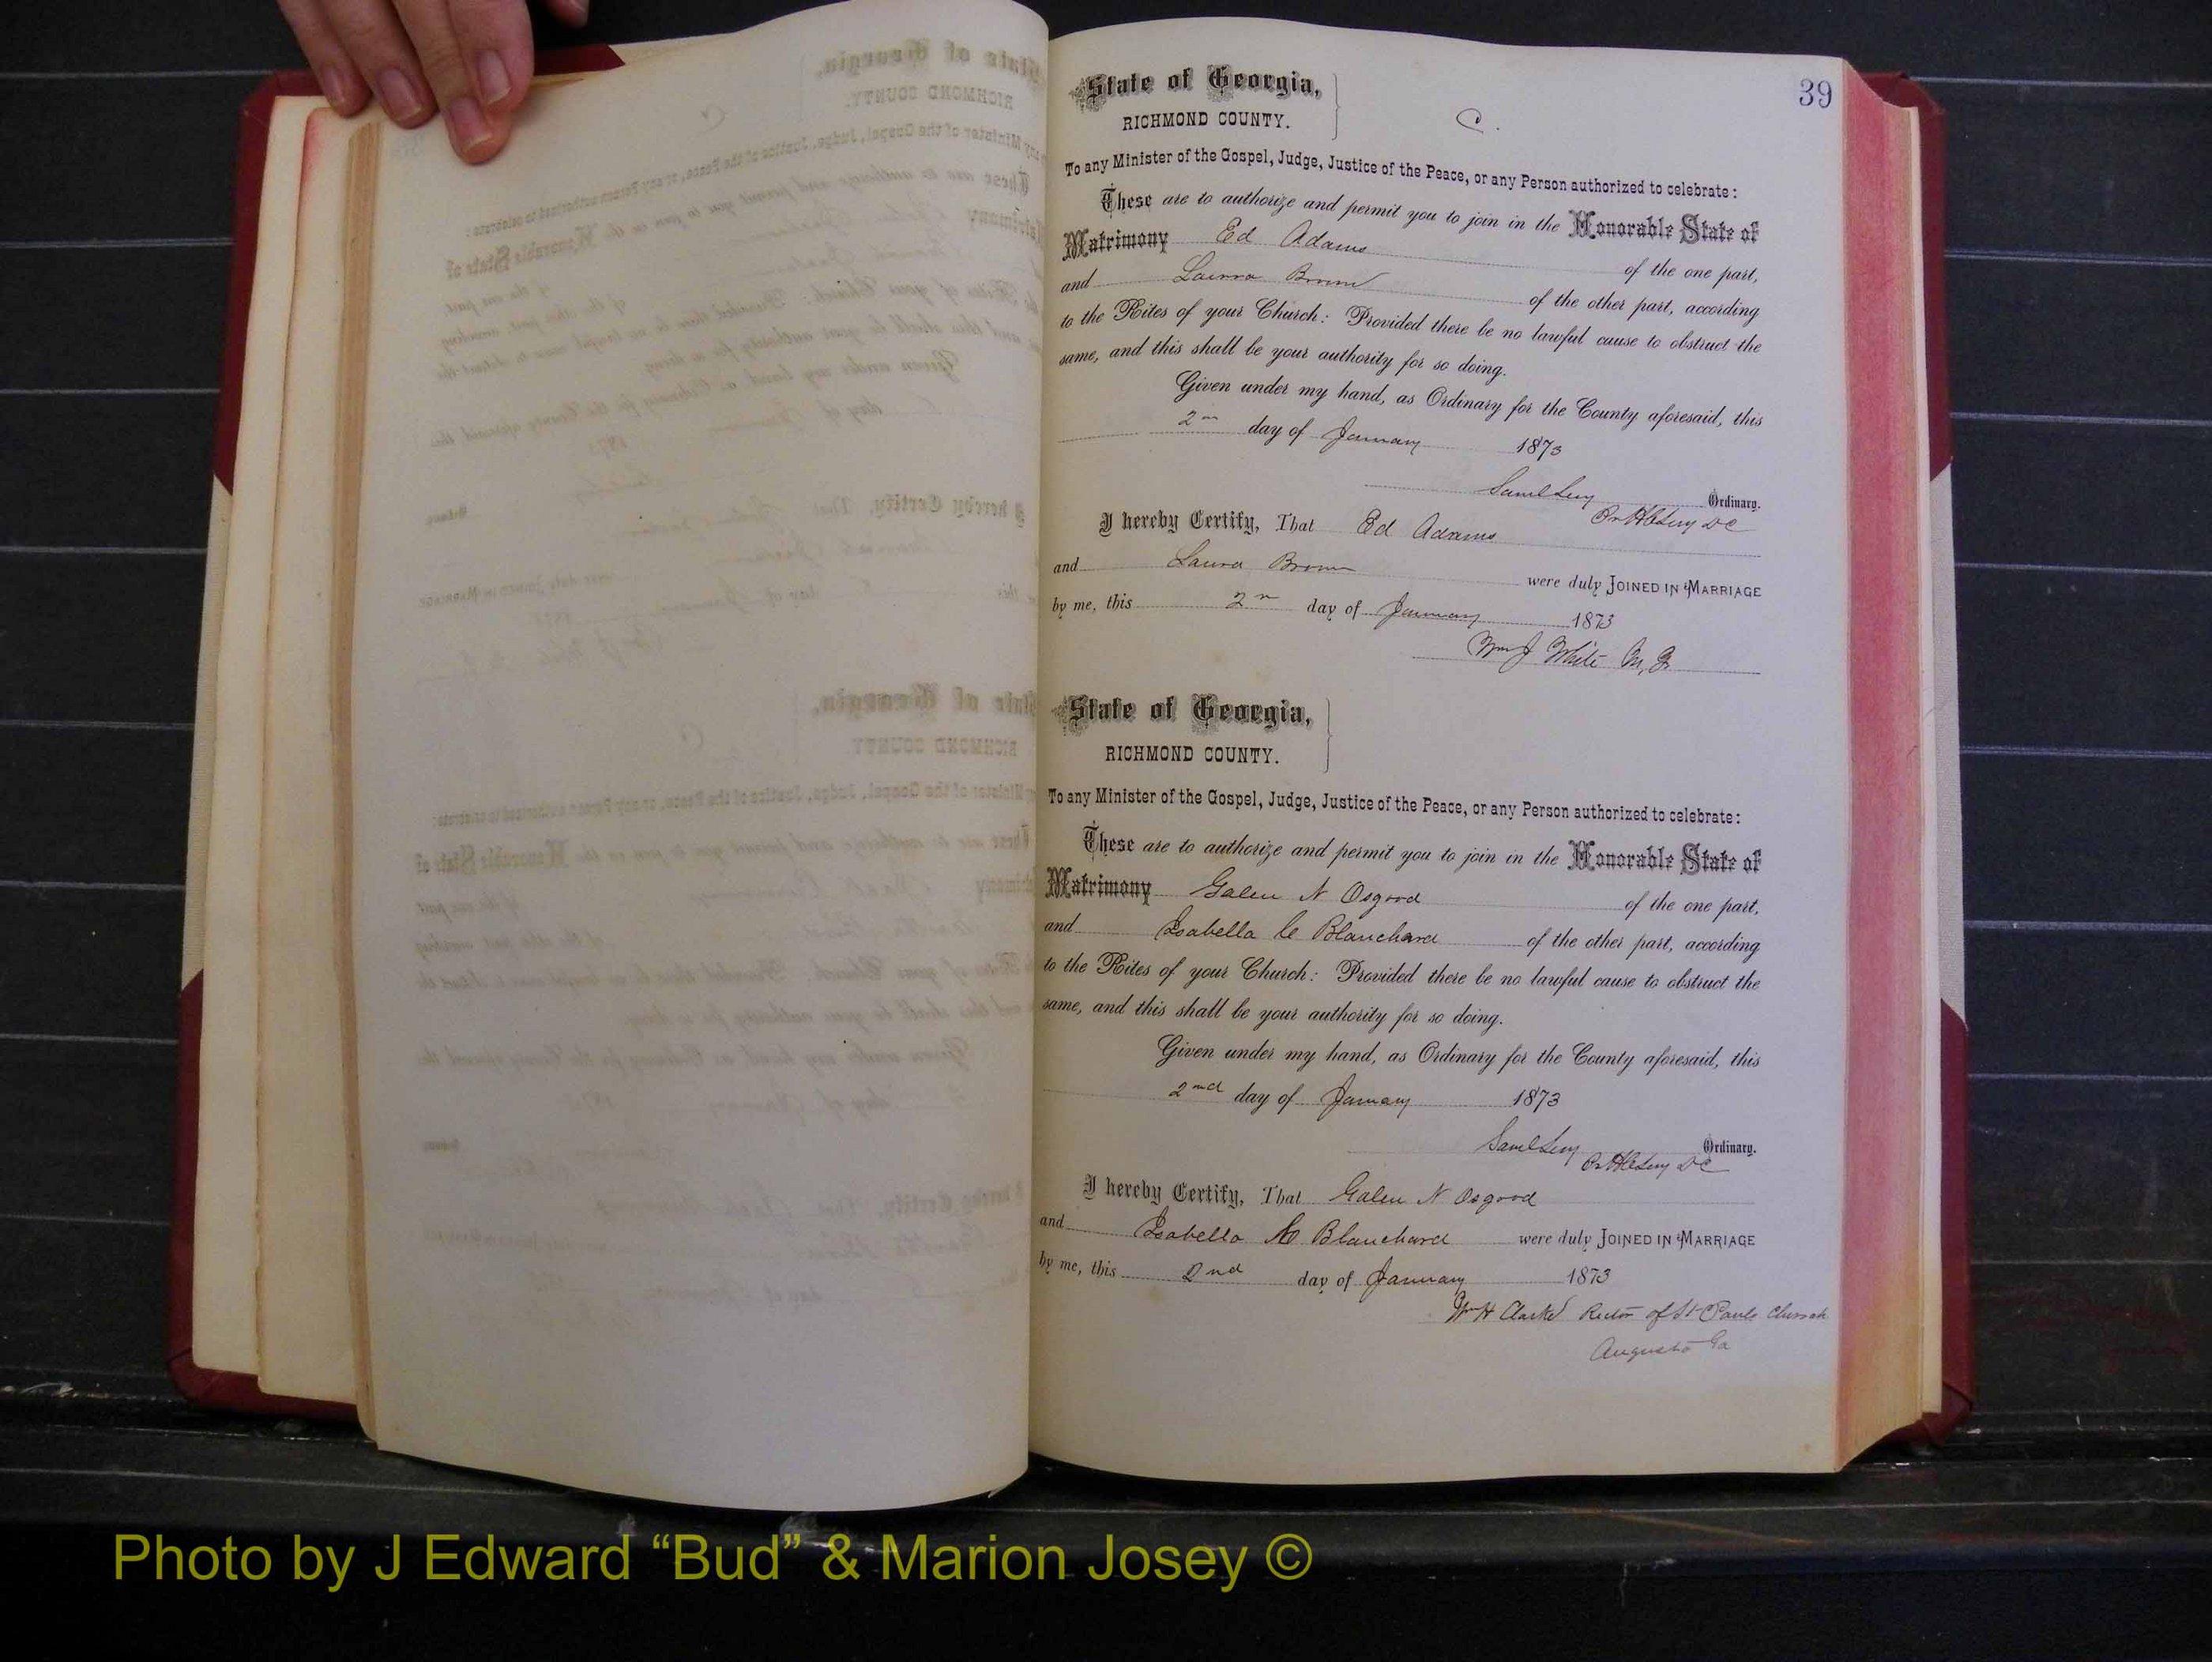 39
State of Georgia,
RICHMOND COUNTY.
C.
To any Minister of the Gospel, Judge, Justice of the Peace, or any Person authorized to celebrate:
These are to authorize and permit you to join in the Honorable State of
Matrimony Ed Adams of the one part,
and Laura Brown of the other part, according
to the Rites of your Church: Provided there be no lawful cause to obstruct the
same, and this shall be your authority for so doing.
Given under my hand, as Ordinary for the County aforesaid, this
2nd day of January 1873
Saml Levy Ordinary.
DC
I hereby Certify, That Ed Adams
and Laura Brown were duly JOINED IN MARRIAGE
by me, this 2n day of January 1873
Wm J White M, G.
State of Georgia,
RICHMOND COUNTY.
To any Minister of the Gospel, Judge, Justice of the Peace, or any Person authorized to celebrate:
These are to authorize and permit you to join in the Honorable State of
Matrimony Galen N Osgood of the one part,
and Isabella C Blanchard of the other part, according
to the Rites of your Church: Provided there be no lawful cause to obstruct the
same, and this shall be your authority for so doing.
Given under my hand, as Ordinary for the County aforesaid, this
2nd day of January 1873
Saml Levy Ordinary.
DC
I hereby Certify, That Galen N Osgood
and Isabella Blanchard were duly JOINED IN MARRIAGE
by me, this 2nd day of January 1873
Wm H Clarke Rector of St Pauls Church
Augusta Ga
Photo by J Edward “Bud” & Marion Josey ©